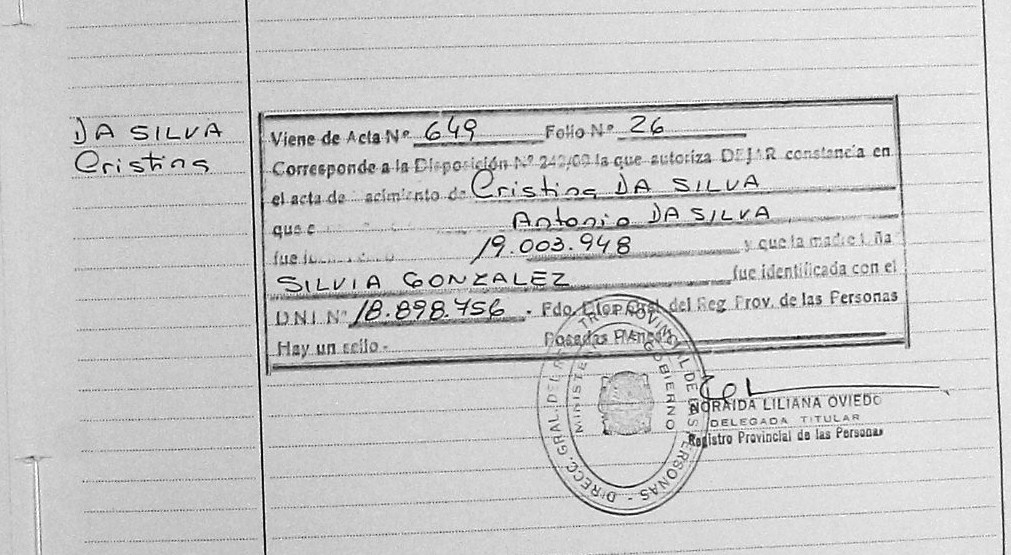 DA SILVA
Cristina
Viene de Acta Nº 649 Folio Nº 26
Corresponde a la Disposición Nº 242/09 la que autoriza DEJAR constancia en
el acta de nacimiento de Cristina DA SILVA
que Antonio DA SILVA
fue 19.003.948 y que la madre
SILVIA GONZALEZ fue identificada con el
DNI Nº 18.898.756 . Fdo. Gral. del Reg Prov. de las Personas
Hay un sello - Posadas
DIRECC. GRAL. DEL PROVINCIAL DE LAS PERSONAS
GOBIERNO
NORAIDA LILIANA OVIEDO
DELEGADA TITULAR
Registro Provincial de las Personas